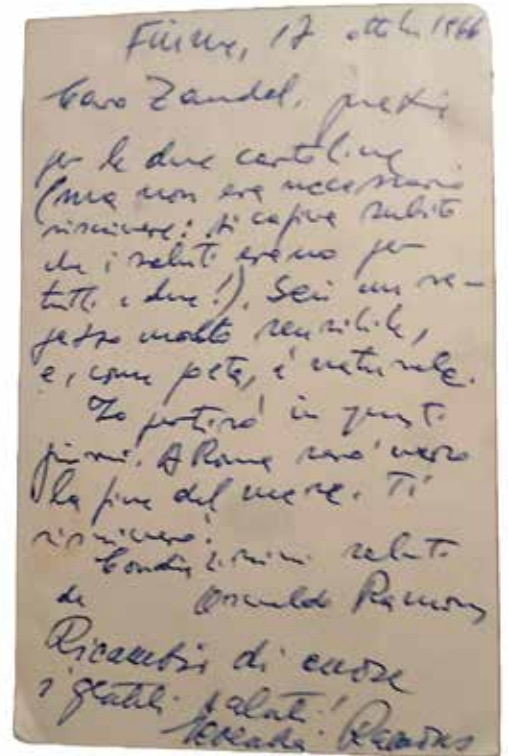 Fiume, 17 ottobre 1966
Caro Zandel, grazie
per le due cartoline
(ma non era necessario
riscrivere: si capiva subito
che i saluti erano per
tutti e due!). Sei un ra-
gazzo molto sensibile,
e, come poeta, è naturale.
Io partirò in questi
giorni. A Roma sarò verso
la fine del mese. Ti
riscriverò.
Cordialissimi saluti
da Osvaldo Ramous
Ricambio di cuore
i gentili saluti!
Ramous